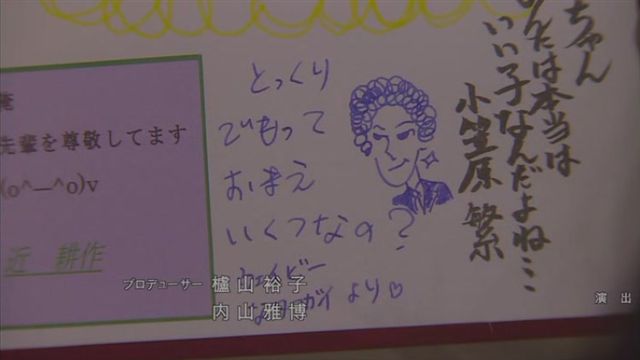 ちゃん
んたは本当は
いい子なんだよね…
小笠原 繁
とっくり
でもって
おまえ
いくつなの?
ウェイビー
なヤローガイより♡
俺
先輩を尊敬してます
(o^―^o)v
近 耕作
プロデューサー 櫨山裕子
内山雅博
演出